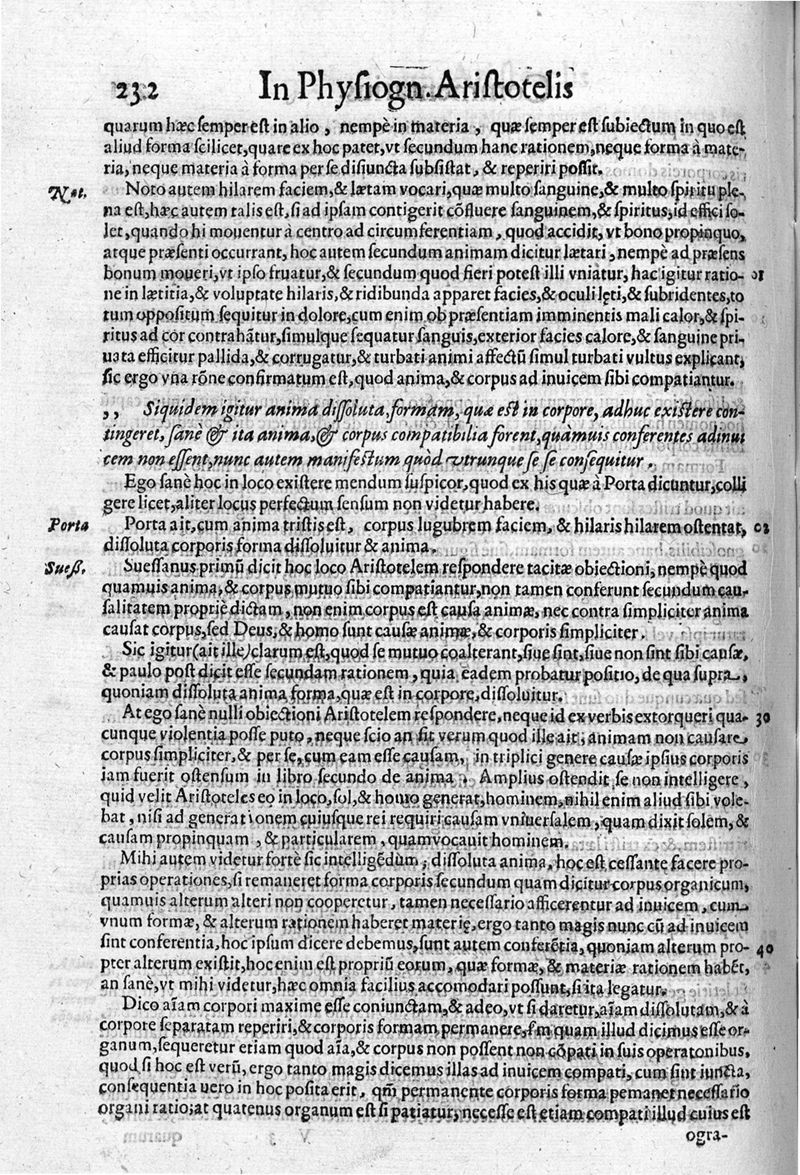 232 In Physiogn. Aristotelis
quarum hæc semper est in alio, nempè in materia, quæ semper est subiectum in quo est
aliud forma scilicet, quare ex hoc patet, vt secundum hanc rationem, neque forma à mate-
ria, neque materia à forma per se disiuncta subsistat, & reperiri possit.
Not. Noto autem hilarem faciem, & lætam vocari, quæ multo sanguine, & multo spiritu ple-
na est, hæc autem talis est, si ad ipsam contigerit cōfluere sanguinem, & spiritus, id effici so-
let, quando hi mouentur à centro ad circumferentiam, quod accidit, vt bono propinquo,
atque præsenti occurrant, hoc autem secundum animam dicitur lætari, nempè ad præsens
bonum moueri, vt ipso fruatur, & secundum quod fieri potest illi vniatur, hac igitur ratio-
ne in lætitia, & voluptate hilaris, & ridibunda apparet facies, & oculi lęti, & subridentes, to
tum oppositum sequitur in dolore, cum enim ob præsentiam imminentis mali calor, & spi-
ritus ad cor contrahātur, simulque sequatur sanguis, exterior facies calore, & sanguine pri-
uata efficitur pallida, & corrugatur, & turbati animi affectū simul turbati vultus explicant,
sic ergo vna rōne confirmatum est, quod anima, & corpus ad inuicem sibi compatiantur.
,, Siquidem igitur anima dissoluta, formam, quæ est in corpore, adhuc existere con-
tingeret, sanè & ita anima, & corpus compatibilia forent, quàmuis conferentes adinui
cem non essent, nunc autem manifestum quòd vtrunque se se consequitur.
Ego sanè hoc in loco existere mendum suspicor, quod ex his quæ à Porta dicuntur, colli
gere licet, aliter locus perfectum sensum non videtur habere.
Porta Porta ait, cum anima tristis est, corpus lugubrem faciem, & hilaris hilarem ostentat,
dissoluta corporis forma dissoluitur & anima.
Sueß. Suessanus primū dicit hoc loco Aristotelem respondere tacitæ obiectioni, nempè quod
quamuis anima, & corpus mutuo sibi compatiantur, non tamen conferunt secundum cau-
salitatem propriè dictam, non enim corpus est causa animæ, nec contra simpliciter anima
causat corpus, sed Deus, & homo sunt causæ animæ, & corporis simpliciter.
Sic igitur (ait ille) clarum est, quod se mutuo coalterant, siue sint, siue non sint sibi causæ,
& paulo post dicit esse secundam rationem, quia eadem probatur positio, de qua supra,
quoniam dissoluta anima forma, quæ est in corpore, dissoluitur.
At ego sanè nulli obiectioni Aristotelem respondere, neque id ex verbis extorqueri qua- 30
cunque violentia posse puto, neque scio an sit verum quod ille ait, animam non causare
corpus simpliciter, & per se, cum eam esse causam, in triplici genere causæ ipsius corporis
iam fuerit ostensum in libro secundo de anima. Amplius ostendit se non intelligere,
quid velit Aristoteles eo in loco, sol, & homo generat, hominem, nihil enim aliud sibi vole-
bat, nisi ad generationem cuiusque rei requiri causam vniuersalem, quam dixit solem, &
causam propinquam, & particularem, quam vocauit hominem.
Mihi autem videtur fortè sic intelligēdum; dissoluta anima, hoc est cessante facere pro-
prias operationes, si remaneret forma corporis secundum quam dicitur corpus organicum,
quamuis alterum alteri non cooperetur, tamen necessario afficerentur ad inuicem, cum
vnum formæ, & alterum rationem haberet materię, ergo tanto magis nunc cū ad inuicem
sint conferentia, hoc ipsum dicere debemus, sunt autem conferētia, quoniam alterum pro- 40
pter alterum existit, hoc enim est propriū eorum, quæ formæ, & materiæ rationem habēt,
an sanè, vt mihi videtur, hæc omnia facilius accomodari possunt, si ita legatur.
Dico aīam corpori maxime esse coniunctam, & adeo, vt si daretur, aīam dissolutam, & à
corpore separatam reperiri, & corporis formam, permanere, quam illud dicimus esse or-
ganum, sequeretur etiam quod aīa, & corpus non possent non cōpati in suis operatonibus,
quod si hoc est verū, ergo tanto magis dicemus illas ad inuicem compati, cum sint iuncta,
consequentia uero in hoc posita erit, qm̄ permanente corporis forma pemanet necessario
organi ratio; at quatenus organum est si patiatur, necesse est etiam compati illud cuius est
ogra-